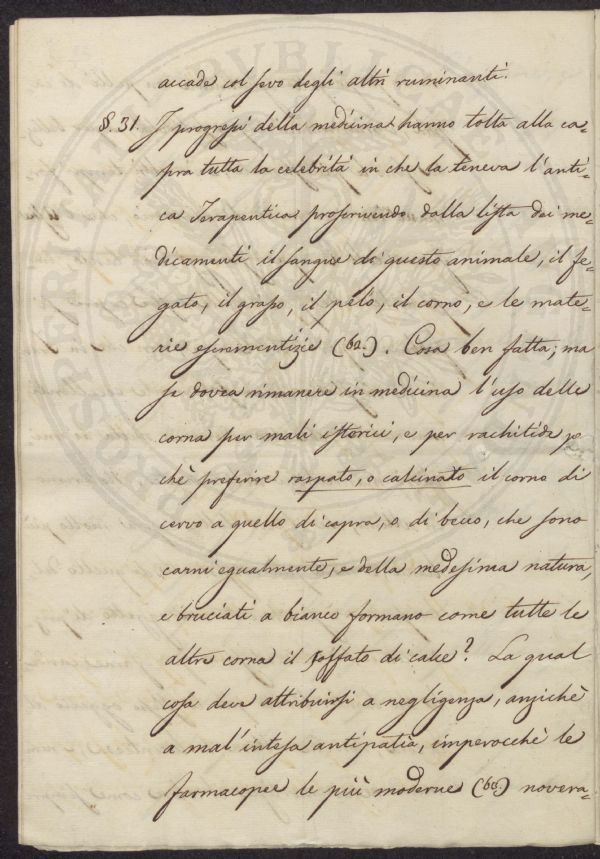 accade col sevo degli altri ruminanti.
§. 31. I progressi della medicina hanno tolta alla ca=
pra tutta la celebrità in che la teneva l'anti=
ca Terapeutica proscrivendo dalla lista dei me=
dicamenti il sangue di questo animale, il fe=
gato, il grasso, il pelo, il corno, e le mate=
rie escrementizie (62.). Cosa ben fatta; ma
se dovea rimanere in medicina l'uso delle
corna per mali isterici, e per rachitide per
chè preferire raspato, o calcinato il corno di
cervo a quello di capra, o di becco, che sono
carni egualmente, e della medesima natura,
e bruciati a bianco formano come tutte le
altre corna il soffato di calce? La qual
cosa deve attribuirsi a negligenza, anzichè
a mal'intesa antipatia, imperocchè le
farmacopee le più moderne (60.) novera=
PUBLICAE
PROSPERITATI